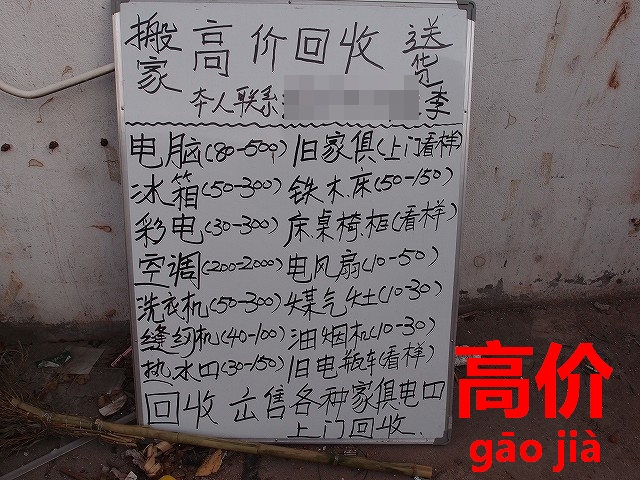 搬家 高价回收 送货
本人联系: 李
电脑(80-500) 旧家俱(上门看样)
冰箱(50-300) 铁木床(50-150)
彩电(30-300) 床.桌椅.柜(看样)
空调(200-2000) 电风扇(10-50)
洗衣机(50-300) 煤气灶(10-30)
缝纫机(40-100) 油烟机(10-30)
热水口(30-150) 旧电瓶车(看样)
回收 出售各种家俱电口
上门回收.
高价
gāo jià